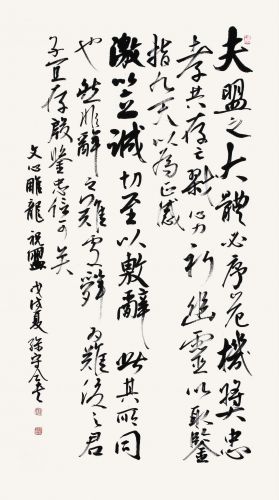 夫盟之大體必序危機獎忠
孝共存亡戮心力祈幽靈以取鑒
指九天以為正感
激以立誠切至以敷辭此其所同
也然非辭之難處辭為難後之君
子宜存殷鑒忠信可矣
文心雕龍 祝盟 戊戌夏